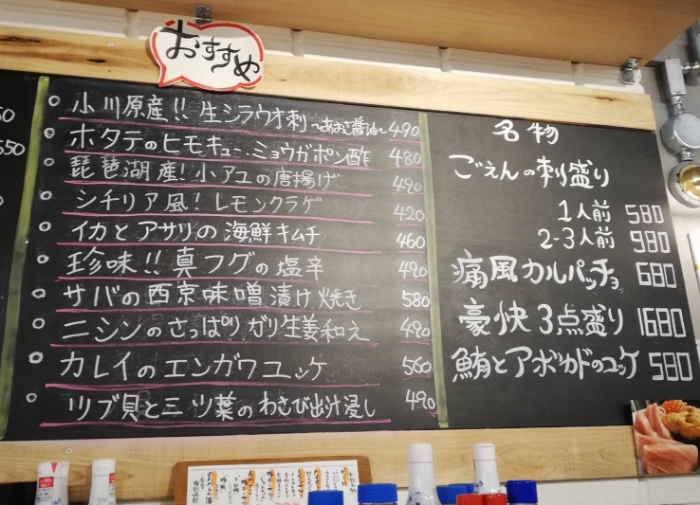 おすすめ
50
550
小川原産!! 生シラウオ刺 〜あおさ醤油〜 490
ホタテのヒモキュー、ミョウガポン酢 480
琵琶湖産! 小アユの唐揚げ 490
シチリア風! レモンクラゲ 420
イカとアサリの海鮮キムチ 460
珍味!! 真フグの塩辛 490
サバの西京味噌漬け焼き 580
ニシンのさっぱりガリ生姜和え 490
カレイのエンガワユッケ 560
ツブ貝と三ツ葉のわさび出汁浸し 490
名物
ごえんの刺盛り
1人前 580
2-3人前 980
痛風カルパッチョ 680
豪快3点盛り 1680
鮪とアボカドのユッケ 580